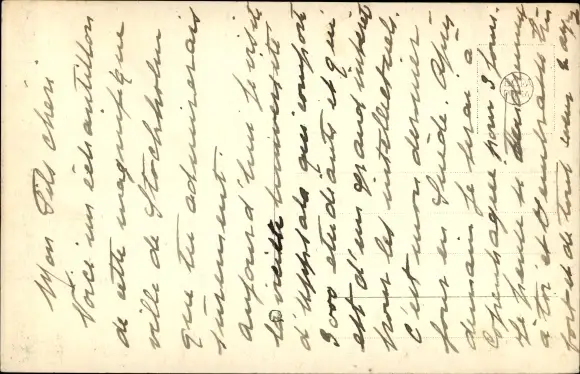 Mon Fils chéri.
Voici un échantillon
de cette magnifique
ville de Stockholm
que tu admirerais
sûrement.
Aujourd'hui je visite
la vieille université
d'Uppsala qui comporte
3000 étudiants et qui
est d'un grand intérêt
pour les intellectuels.
C'est mon dernier
jour en Suède. Après
demain je serai à
Copenhague pour 3 jours.
Je pense te
à toi et t'embrasse très
fort et de tout mon